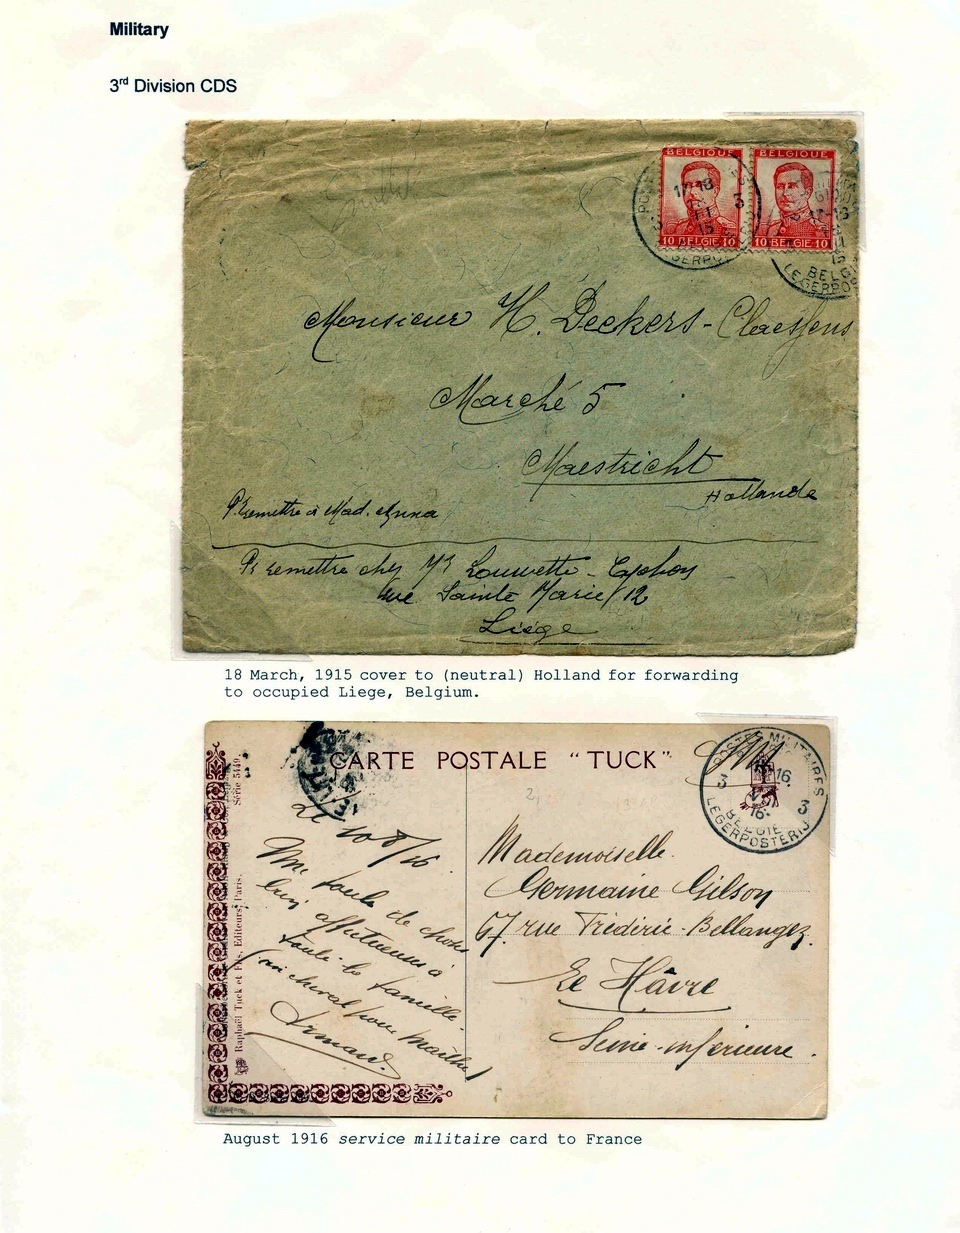 Military
3rd Division CDS
BELGIQUE BELGIQUE
17-18
3
15
10 BELGIE 10 10 BELGIE 10
BELGIE
LEGERPOS
Monsieur H. Deckers-Claessens
Marché 5
Maestricht
Hollande
P. remettre à Mad. Anna
Pr remettre chez Mr Louwette-
rue Sainte Marie/12
Liége
18 March, 1915 cover to (neutral) Holland for forwarding
to occupied Liege, Belgium.
CARTE POSTALE "TUCK"
S.M.
POSTES MILITAIRES
3 16 3
16
BELGIE
LEGERPOSTERIJ
Série 5449.
Raphaël Tuck et Fils, Editeurs, Paris.
Le 10/8/16
Mille de choses
bien affectueuses à
toute la famille.
Armand.
Mademoiselle
Germaine Gilson
57. rue Frédéric-Bellanger.
Le Hâvre
Seine-inférieure.
August 1916 service militaire card to France